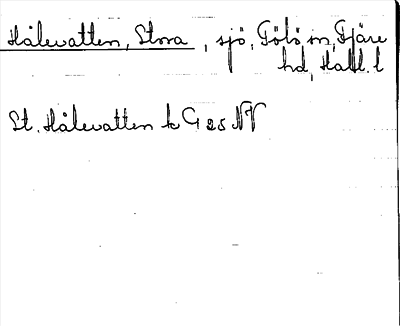 Hålevatten, Stora, sjö, Tölö sn, Fjäre
hd, Hall. l
St. Hålevatten k G 25 NV